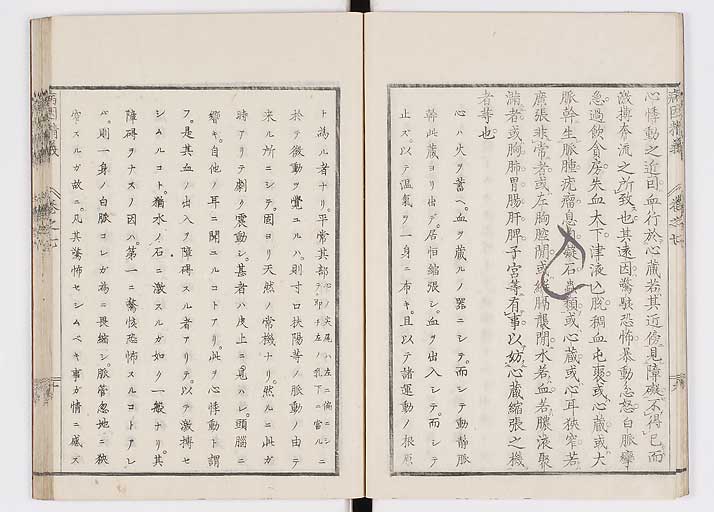 心悸動之近因血行於心蔵若其近傍見障礙不得已而
激摶奔流之所致也其遠因驚駭恐怖暴動忿怒白脈攣
急過飲食房失血大下津液入脱稠血屯聚或心蔵或大
脈幹生脈腫疣瘤息肉凝石蟲類或心蔵或心耳狭窄若
廣張非常者或左胸腔間或縦膈襲間水若血若膿液聚
満者或胸肺胃腸肝脾子宮等有事以妨心蔵縮張之機
者等也
心ハ火ヲ蓄ヘ血ヲ蔵ルノ器ニシテ而シテ動静脈
幹此蔵ヨリ出デ居恒縮張シ血ヲ出入シテ而シテ
止ズ以テ温氣ヲ一身ニ布キ且以テ諸運動ノ根原
ト為ル者ナリ平常其部心ノ尖尾ハ左ニ偏ニシテ即チ左ノ乳下ニ當ルニ
於テ微動ヲ覺ユルハ則寸口扶陽等ノ脈動ノ由テ
来ル所ニシテ固ヨリ天然ノ常機ナリ然ルニ此ガ
時アリテ劇ク震動シ甚者ハ皮上ニ見ハレ頭脳ニ
響キ自他ノ耳ニ聞ユルコトアリ此ヲ心悸動ト謂
フ是其血ノ出入ヲ障碍スル者アリテ以テ激摶セ
シムルコト猶水ノ石ニ激スルガ如ク一般ナリ其
障碍ヲナスノ因ハ第一ニ驚恢恐怖スルコトアレ
バ則一身ノ白脈コレガ為ニ畏縮シ脈管忽地ニ狭
窄スルガ故ニ凡其驚怖セシムベキ事ガ情ニ感ズ
病因精義
巻之七
七